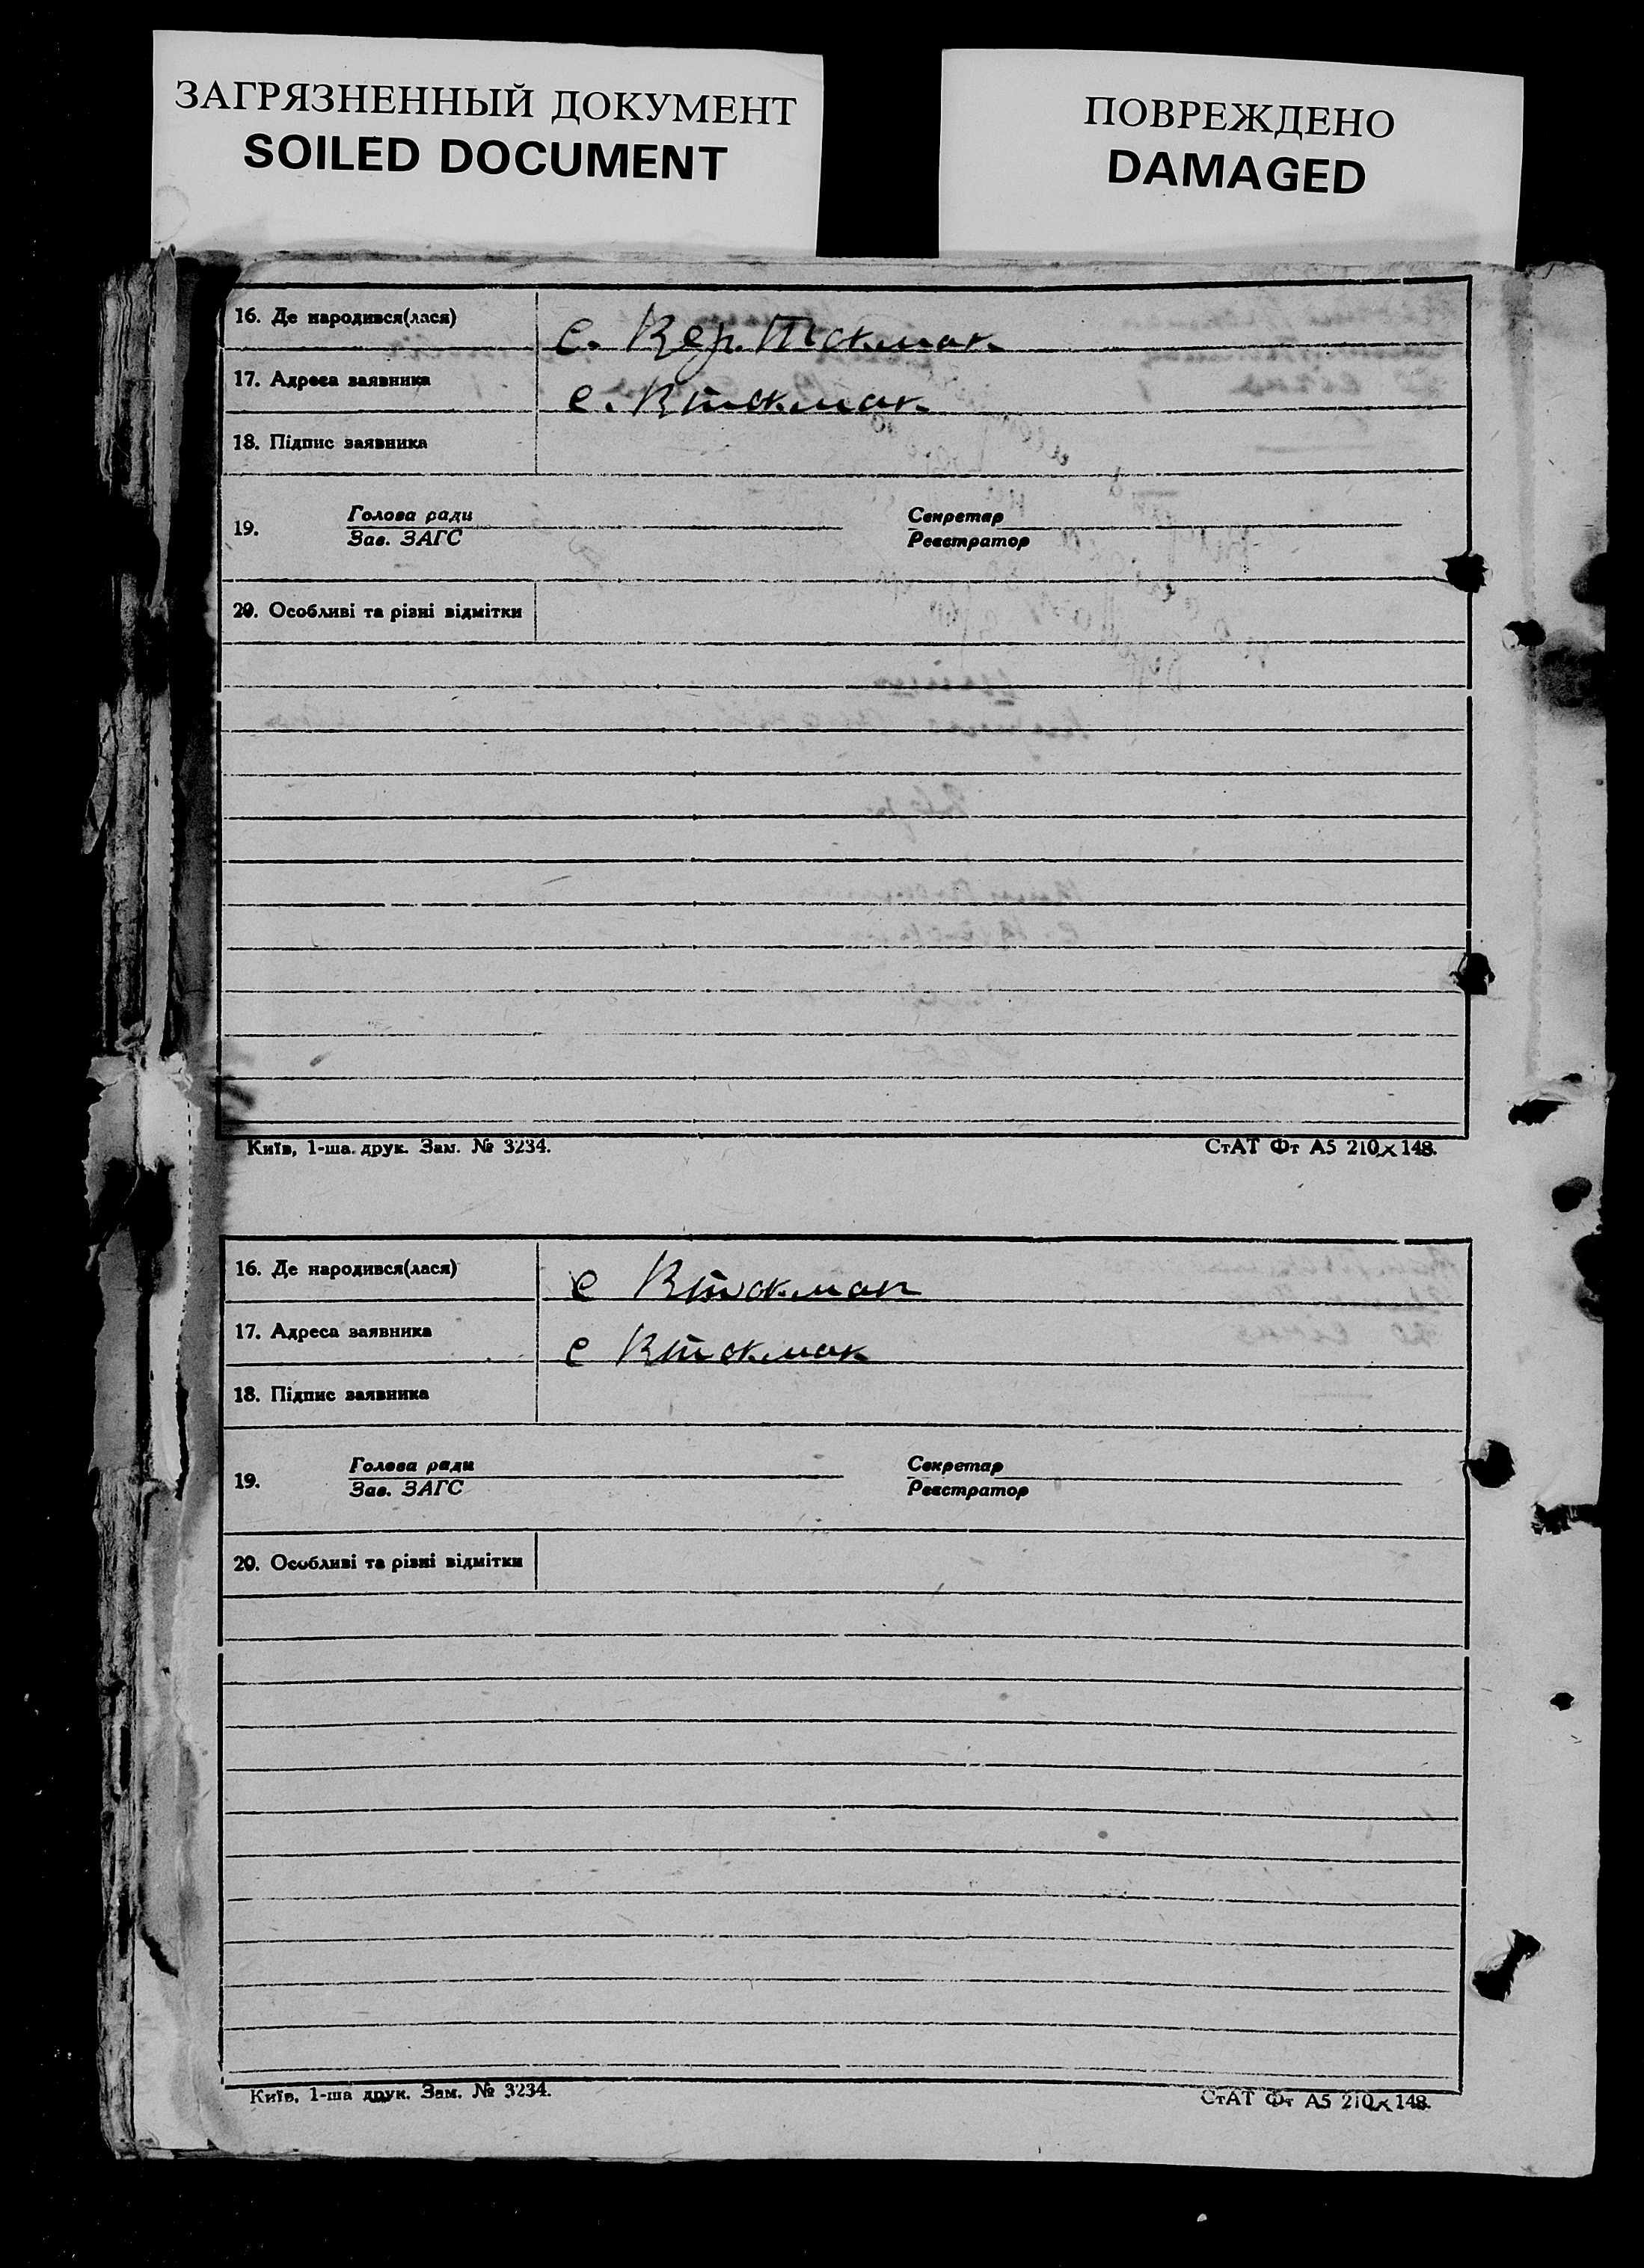 ЗАГРЯЗНЕННЫЙ ДОКУМЕНТ
SOILED DOCUMENT
ПОВРЕЖДЕНО
DAMAGED
16. Де народився(лася) с. Вер. Токмак
17. Адреса заявника с. Втокмак
18. Підпис заявника
19. Голова ради Секретар
Зав. ЗАГС Реєстратор
20. Особливі та різні відмітки
Київ, 1-ша друк. Зам. № 3234. СтАТ Фт А5 210×148.
16. Де народився(лася) с Втокмак
17. Адреса заявника с Втокмак
18. Підпис заявника
19. Голова ради Секретар
Зав. ЗАГС Реєстратор
20. Особливі та різні відмітки
Київ, 1-ша друк. Зам. № 3234. СтАТ Фт А5 210×148.